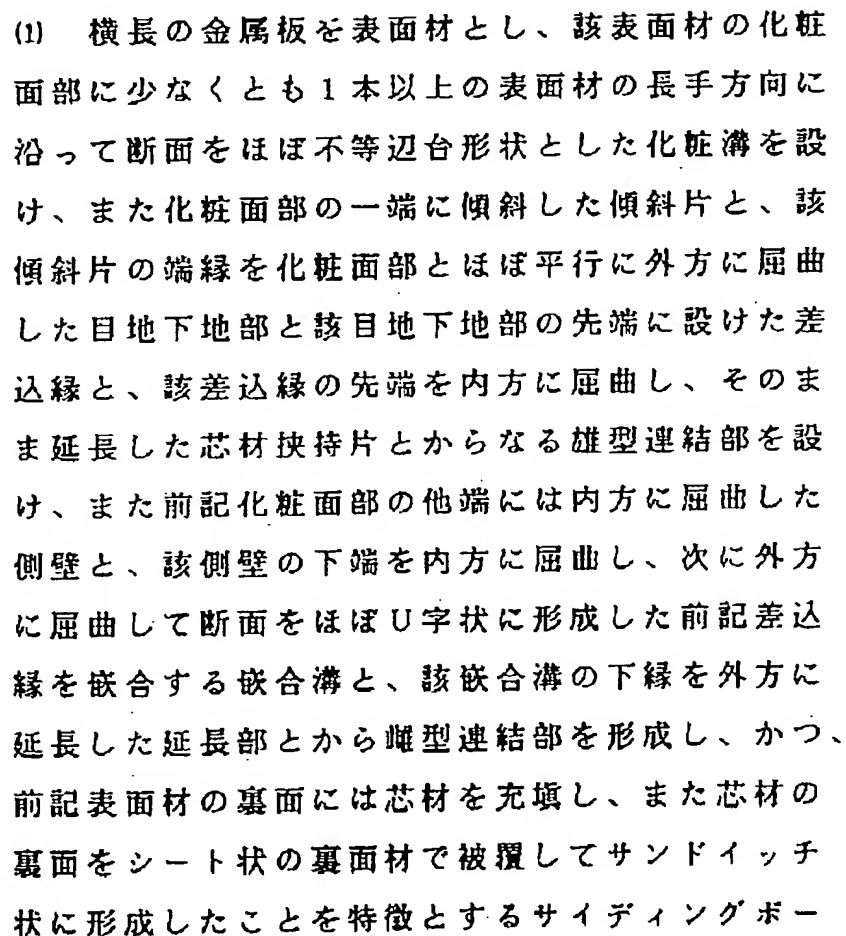 (1) 横長の金属板を表面材とし、該表面材の化粧
面部に少なくとも1本以上の表面材の長手方向に
沿って断面をほぼ不等辺台形状とした化粧溝を設
け、また化粧面部の一端に傾斜した傾斜片と、該
傾斜片の端縁を化粧面部とほぼ平行に外方に屈曲
した目地下地部と該目地下地部の先端に設けた差
込縁と、該差込縁の先端を内方に屈曲し、そのま
ま延長した芯材挟持片とからなる雄型連結部を設
け、また前記化粧面部の他端には内方に屈曲した
側壁と、該側壁の下端を内方に屈曲し、次に外方
に屈曲して断面をほぼU字状に形成した前記差込
縁を嵌合する嵌合溝と、該嵌合溝の下縁を外方に
延長した延長部とから雌型連結部を形成し、かつ、
前記表面材の裏面には芯材を充塡し、また芯材の
裏面をシート状の裏面材で被覆してサンドイッチ
状に形成したことを特徴とするサイディングボー